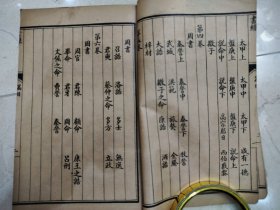 太甲上 太甲中 太甲下 咸有一德
盤庚上 盤庚中 盤庚下 說命上
說命中 說命下 高宗肜日 西伯戡黎
微子
第四卷
周書
泰誓上 泰誓中 泰誓下 牧誓
武成 洪範 旅獒 金縢
大誥 微子之命 康誥 酒誥
梓材
周書
召誥 洛誥 多士 無逸
君奭 蔡仲之命 多方 立政
第六卷
周書
周官 君陳 顧命 康王之誥
畢命 君牙 冏命 呂刑
文侯之命 費誓 秦誓